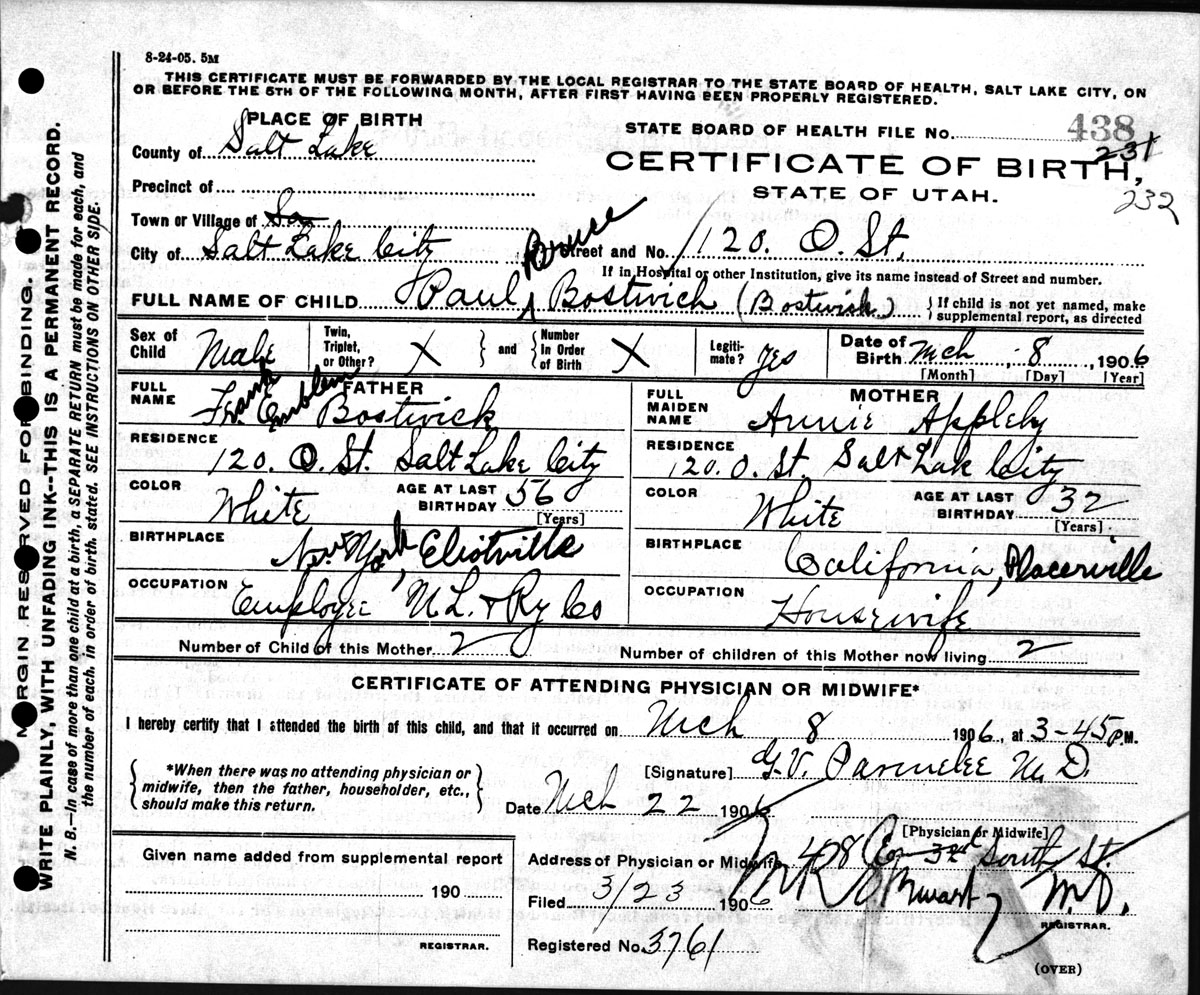 8-24-05. 5M
THIS CERTIFICATE MUST BE FORWARDED BY THE LOCAL REGISTRAR TO THE STATE BOARD OF HEALTH, SALT LAKE CITY, ON
OR BEFORE THE 5TH OF THE FOLLOWING MONTH, AFTER FIRST HAVING BEEN PROPERLY REGISTERED.
MARGIN RESERVED FOR BINDING.
WRITE PLAINLY, WITH UNFADING INK--THIS IS A PERMANENT RECORD.
N. B.—In case of more than one child at a birth, a SEPARATE RETURN must be made for each, and
the number of each, in order of birth, stated. SEE INSTRUCTIONS ON OTHER SIDE.
PLACE OF BIRTH
STATE BOARD OF HEALTH FILE No. 438
231
232
County of Salt Lake
CERTIFICATE OF BIRTH,
STATE OF UTAH.
Precinct of
Town or Village of So
City of Salt Lake City Street and No. 120. O St.
If in Hospital or other Institution, give its name instead of Street and number.
FULL NAME OF CHILD Paul Bruce Bostwich (Bostwick) If child is not yet named, make
supplemental report, as directed
Sex of Child Male Twin, Triplet, or Other? X and Number In Order of Birth X Legiti-mate? Yes Date of Birth Mch 8, 1906
[Month] [Day] [Year]
FULL NAME FATHER Fr. Frank Emblem Bostwick
FULL MAIDEN NAME MOTHER Annie Appleby
RESIDENCE 120. O. St. Salt Lake City
RESIDENCE 120. O. St. Salt Lak City
COLOR White AGE AT LAST BIRTHDAY 56 [Years]
COLOR White AGE AT LAST BIRTHDAY 32 [Years]
BIRTHPLACE New York, Eliotville
BIRTHPLACE California, Placerville
OCCUPATION Employee U L. & Ry Co
OCCUPATION Housewife
Number of Child of this Mother 2 Number of children of this Mother now living 2
CERTIFICATE OF ATTENDING PHYSICIAN OR MIDWIFE*
I hereby certify that I attended the birth of this child, and that it occurred on Mch 8 1906, at 3-45 P.M.
*When there was no attending physician or
midwife, then the father, householder, etc.,
should make this return.
[Signature] G. V. Parmelee M. D.
Date Mch 22 1906
[Physician or Midwife]
Given name added from supplemental report
190
REGISTRAR.
Address of Physician or Midwife 408 E 3rd South St.
Filed 3/23 1906 M.D.
REGISTRAR.
Registered No. 3761
(OVER)